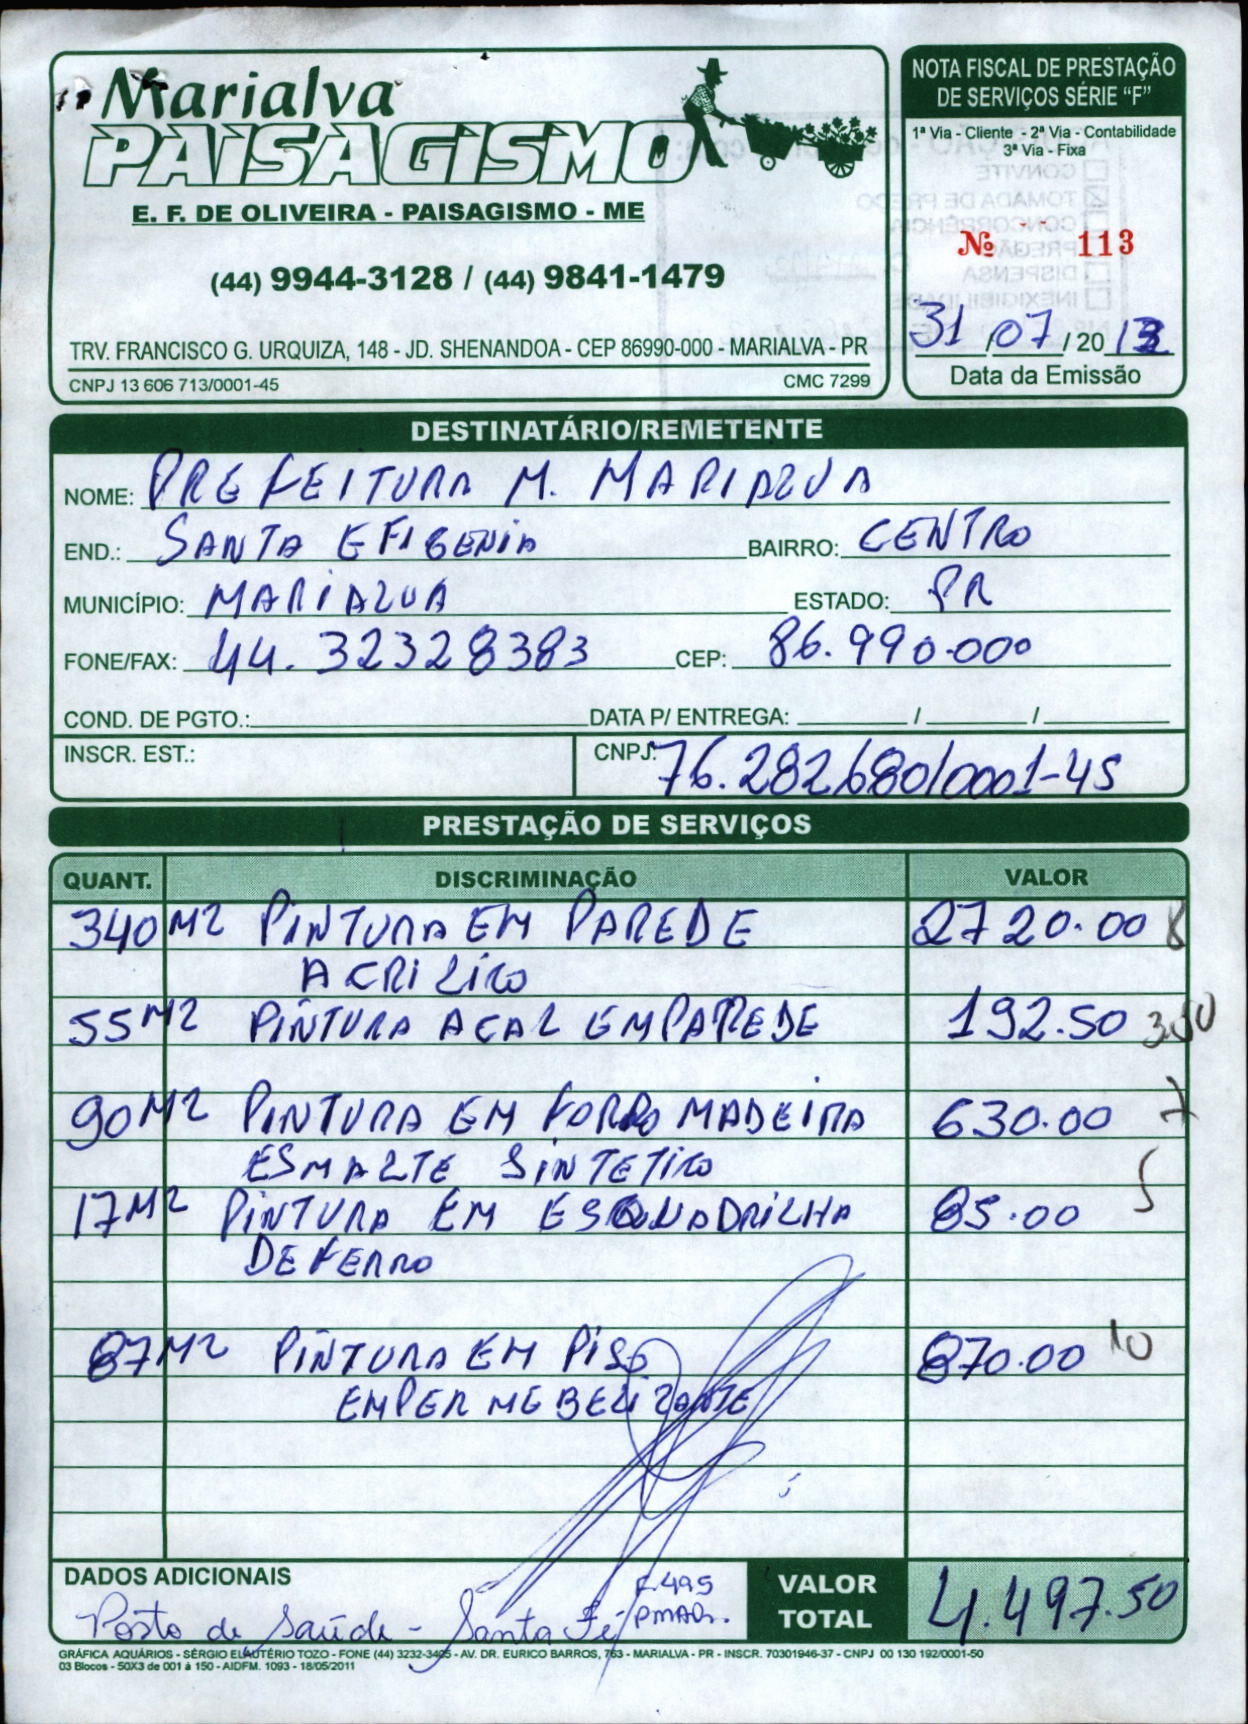 Marialva
PAISAGISMO
E. F. DE OLIVEIRA - PAISAGISMO - ME
(44) 9944-3128 / (44) 9841-1479
TRV. FRANCISCO G. URQUIZA, 148 - JD. SHENANDOA - CEP 86990-000 - MARIALVA - PR
CNPJ 13 606 713/0001-45 CMC 7299
NOTA FISCAL DE PRESTAÇÃO
DE SERVIÇOS SÉRIE “F”
1ª Via - Cliente - 2ª Via - Contabilidade
3ª Via - Fixa
Nº 113
31/07/2013
Data da Emissão
DESTINATÁRIO/REMETENTE
NOME: PREFEITURA M. MARIALVA
END.: SANTA EFIGENIA BAIRRO: CENTRO
MUNICÍPIO: MARIALVA ESTADO: PR
FONE/FAX: 44. 32328383 CEP: 86.990.000
COND. DE PGTO.: DATA P/ ENTREGA: / /
INSCR. EST.: CNPJ: 76.282680/0001-45
PRESTAÇÃO DE SERVIÇOS
QUANT. DISCRIMINAÇÃO VALOR
340 M2 PINTURA EM PAREDE 2720.00 8
ACRILICO
55 M2 PINTURA ACAL EM PAREDE 192.50 3,50
90 M2 PINTURA EM FORRO MADEIRA 630.00 7
ESMALTE SINTETICO
17 M2 PINTURA EM ESQUADRILHA 85.00 5
DE FERRO
87 M2 PINTURA EM PISO 870.00 10
EMPERMEBELIZANTE
DADOS ADICIONAIS
Posto de Saúde - Santa Fé
VALOR
TOTAL 4.497.50
GRÁFICA AQUÁRIOS - SÉRGIO ELAUTÉRIO TOZO - FONE (44) 3232-3405 - AV. DR. EURICO BARROS, 763 - MARIALVA - PR - INSCR. 70301946-37 - CNPJ 00 130 192/0001-50
03 Blocos - 50X3 de 001 à 150 - AIDFM. 1093 - 18/05/2011